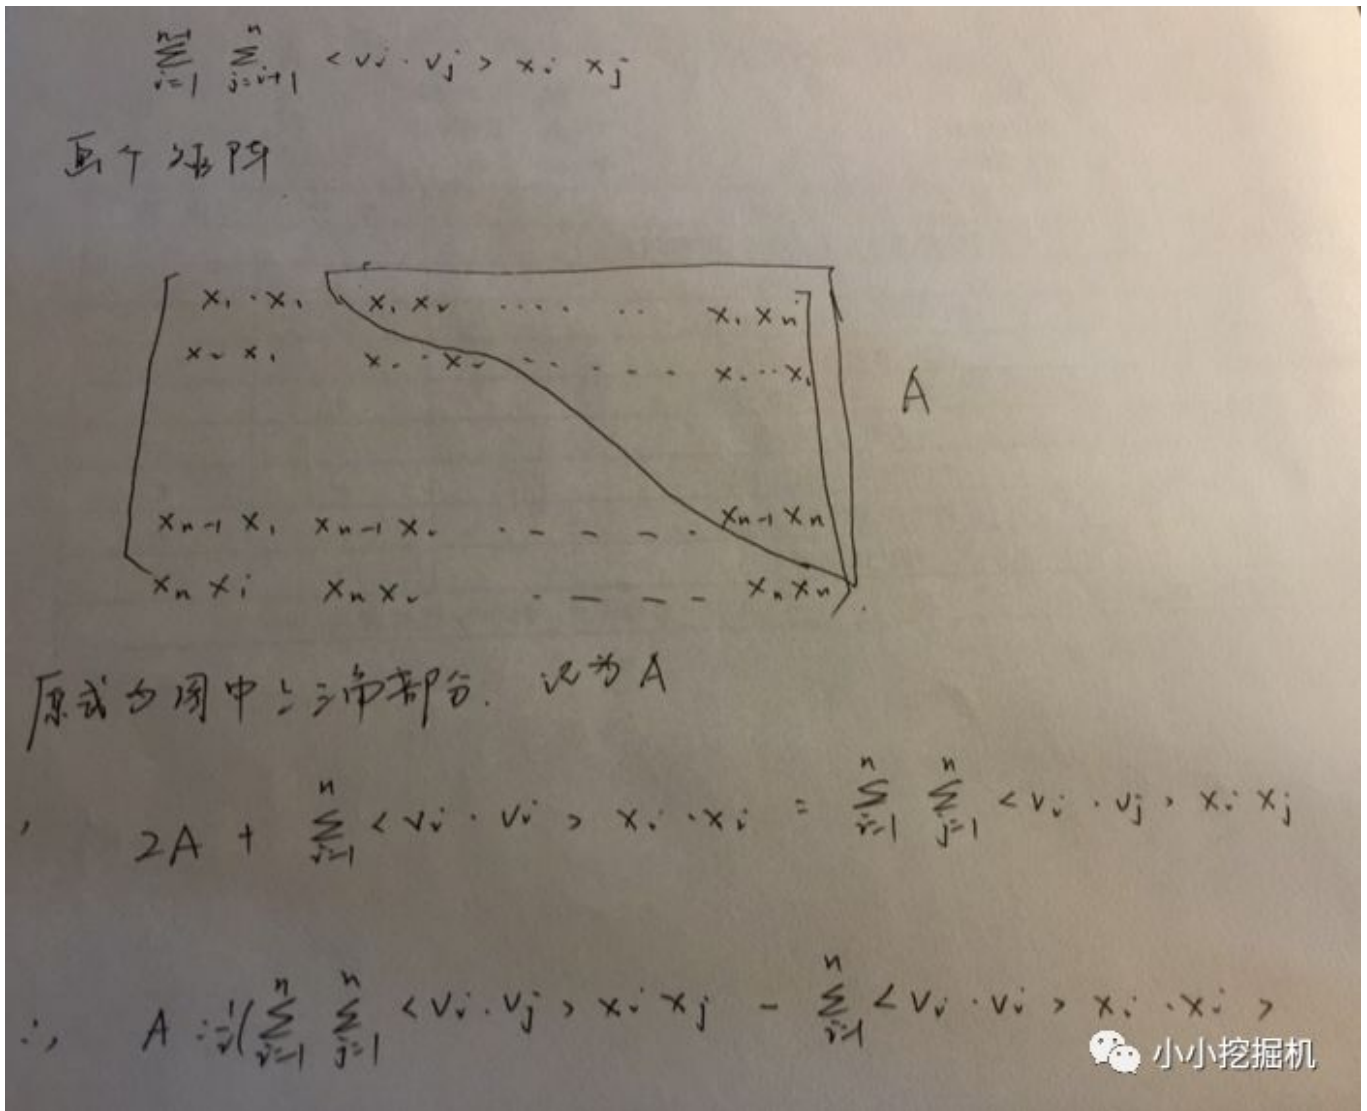 n-1 Σ i=1 n Σ j=i+1 <vi · vj> xi xj
画个矩阵
x1 · x1 x1 x2 ···· ·· x1 xn
x2 x1 x2 · x2 - - - - - -
A
xn-1 x1 xn-1 x2 · - - - - · xn-1 xn
xn xi xn x2 · - - - xn xn
原式为图中上三角部分. 记为 A
2A + n Σ i=1 <vi · vi> xi · xi = n Σ i=1 n Σ j=1 <vi · vj> xi xj
∴, A = 1/2 ( n Σ i=1 n Σ j=1 <vi · vj> xi xj - n Σ i=1 <vi · vi> xi · xi >
小小挖掘机